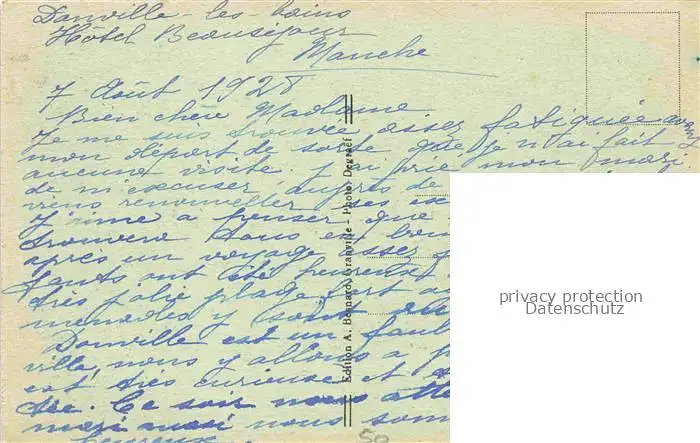 Donville les bains
Hôtel Beauséjour
Manche
7 Août 1928
Bien chère Madame
Je me suis trouvée assez fatiguée avant
mon départ de sorte que je n'ai fait
aucune visite. J'ai prié mon mari
de m'excuser auprès de
viens renouveller ses ex
J'aime à penser que
trouvera tous en bon
après un voyage assez
fants ont été heureux
très jolie plage fort
menades y sont
Donville est un faub
ville, nous y allons à p
est très curieuse et
tée. Ce soir nous atte
mari aussi nous som
heureux.
Edition A. Bernard, Granville - Photo Degraef
50
privacy protection
Datenschutz